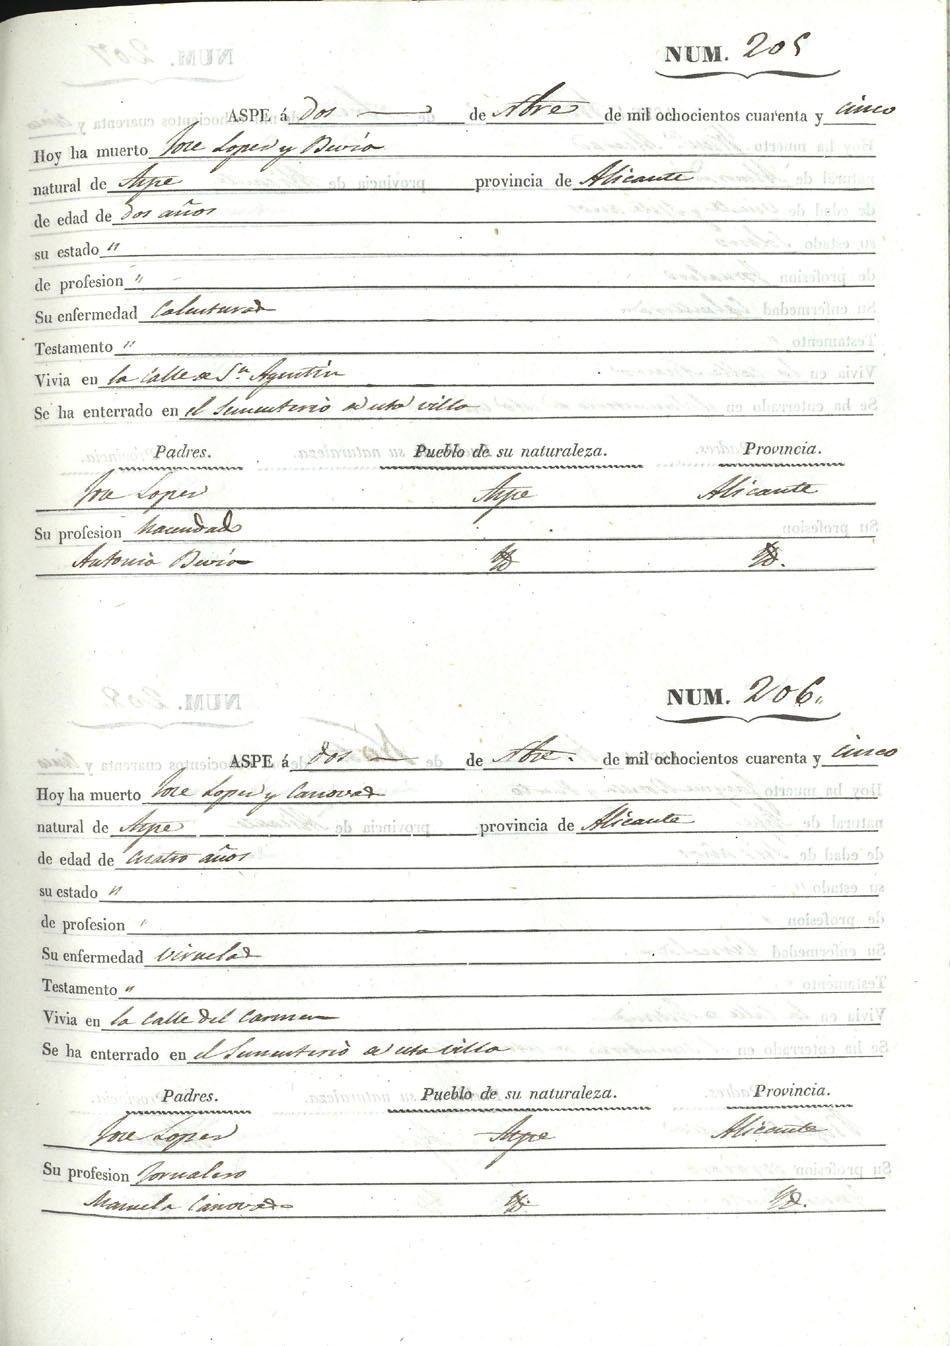 NUM. 205
ASPE á dos de de mil ochocientos cuarenta y cinco
Hoy ha muerto Jose Lopez y
natural de Aspe provincia de Alicante
de edad de dos años
su estado "
de profesion "
Su enfermedad Calenturas
Testamento "
Vivia en la Calle de Sn Agustin
Se ha enterrado en el Sementerio de esta villa
Padres. Pueblo de su naturaleza. Provincia.
Jose Lopez Aspe Alicante
Su profesion
Antonia
NUM. 206
ASPE á dos de de mil ochocientos cuarenta y cinco
Hoy ha muerto Jose Lopez y Canovas
natural de Aspe provincia de Alicante
de edad de cuatro años
su estado "
de profesion "
Su enfermedad viruelas
Testamento "
Vivia en la Calle del Carmen
Se ha enterrado en el Sementerio de esta villa
Padres. Pueblo de su naturaleza. Provincia.
Jose Lopez Aspe Alicante
Su profesion Jornalero
Manuela Canovas Yd. Yd.